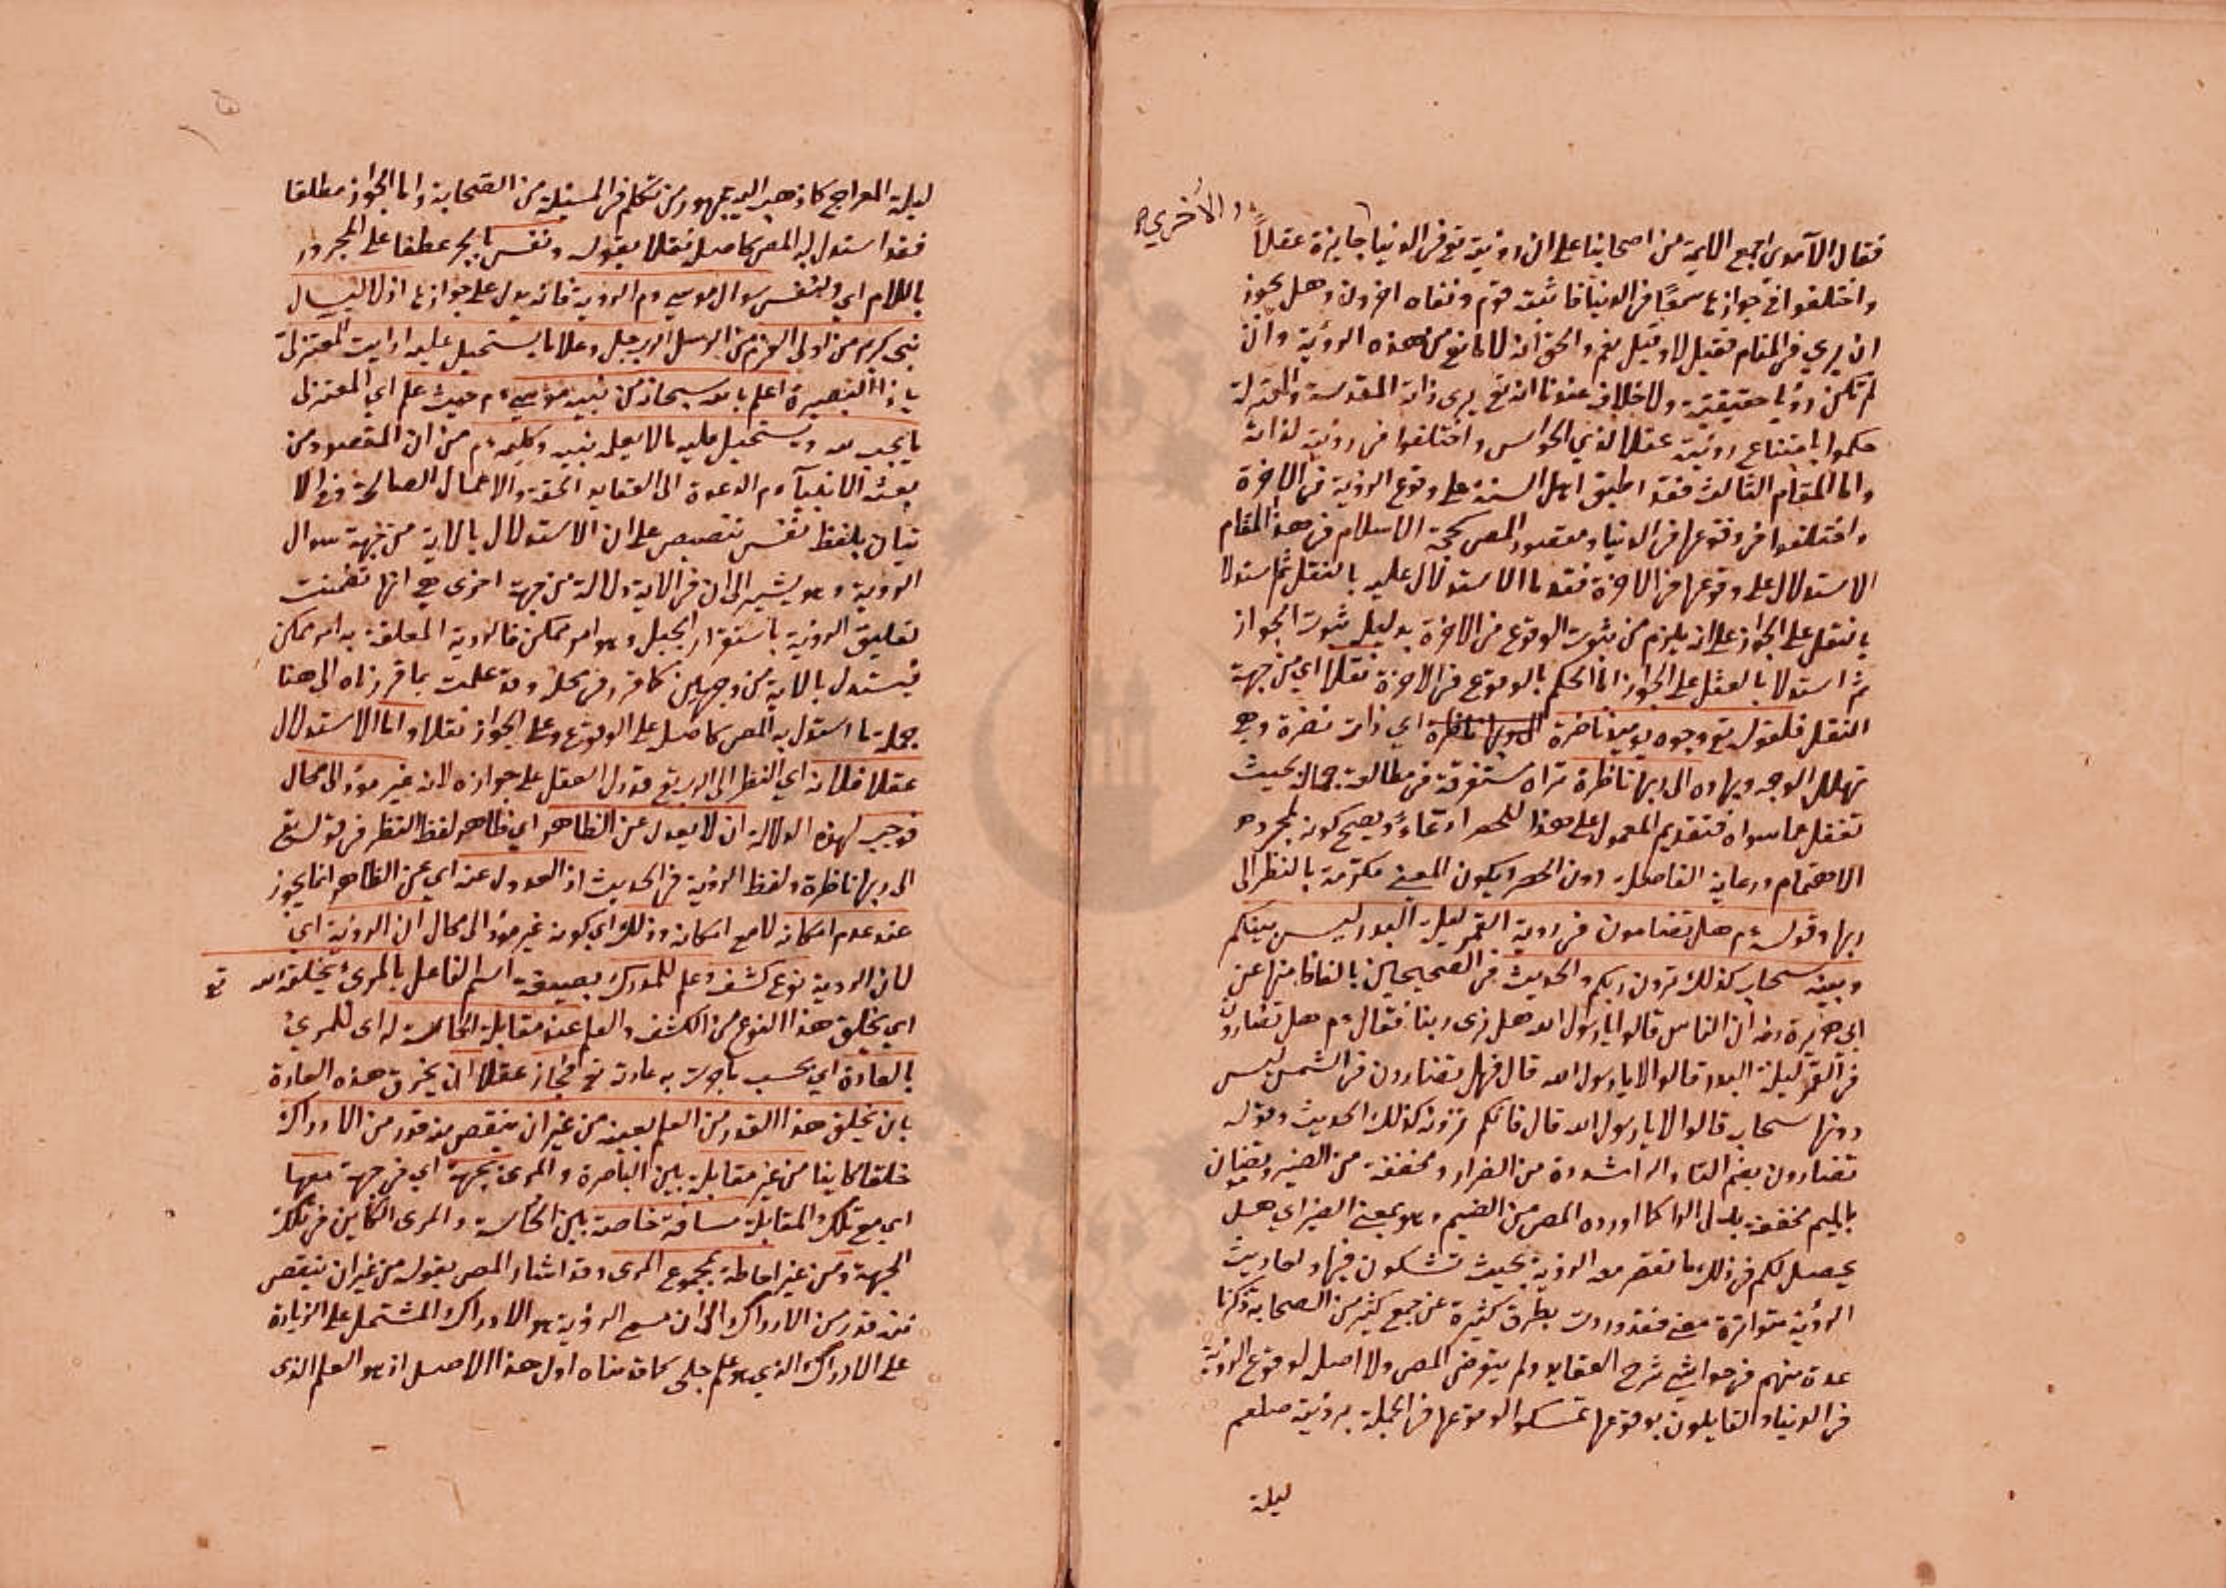 والأخرى
فقال الآمدي اجمع الايمة من اصحابنا على ان رؤيته تع في الدنيا جايزة عقلاً
واختلفوا في جوازها سمعًا في الدنيا فاثبته قوم ونفاه اخرون وهل يجوز
ان يري في المنام فقيل لا وقيل نعم والحق انه لا مانع من هذه الرؤية وان
لم تكن رؤيا حقيقية ولا خلاف عندنا انه تع يرى ذاته المقدسة والمعتزلة
حكموا بامتناع رؤيته عقلا لذي الحواس واختلفوا في رؤيته لذاته
واما المقام الثالث فقد اطبق اهل السنة على وقوع الرؤية في الاخرة
واختلفوا في وقوعها في الدنيا ومقصود المص كحجة الاسلام في هذا المقام
الاستدلال على وقوعها في الاخرة فقدما الاستدلال عليه بالنقل ثم استدلا
بالنقل على الجواز على انه يلزم من ثبوت الوقوع في الاخرة بدليله ثبوت الجواز
ثم استدلا بالعقل على الجواز اما الحكم بالوقوع في الاخرة نقلا اي من جهة
النقل فلقوله تع وجوه يوميذ ناضرة الى ربها ناظرة اي ذات نضرة وهي
تهلل الوجه وبهاوه الى ربها ناظرة تراه مستغرقة في مطالعة جماله بحيث
تغفل عما سواه فتقديم المعمول على هذا للحصر ادعاءً ويصح كونه لمجرد
الاهتمام ورعاية الفاصلة دون الحصر ويكون المعنى مكرمة بالنظر الى
ربها وقوله ءم هل تضامون في روية القمر ليلة البدر ليس بينكم
وبينه سحاب كذلك ترون ربكم والحديث في الصحيحين بالفاظ منها عن
ابي هريرة رضه ان الناس قالوا يا رسول الله هل نرى ربنا فقال ءم هل تضارون
في القمر ليلة البدر قالوا لا يا رسول الله قال فهل تضارون في الشمس ليس
دونها سحاب قالوا لا يا رسول الله قال فانكم ترونه كذلك الحديث وقوله
تضارون بضم التا والرا مشددة من الضرار ومخففة من الضير وتضامون
بالميم مخففة بدل الرا كما اورده المص من الضيم وهو بمعنى الضير اي هل
يحصل لكم في ذلك ما تقصر معه الرؤية بحيث تشكون فيها واحاديث
الرؤية متواترة معنى فقد وردت بطرق كثيرة عن جمع كثير من الصحابة ذكرنا
عدة منهم في حواشي شرح العقايد ولم يتعرض المص ولا اصله لوقوع الرؤية
في الدنيا والقايلون بوقوعها تمسكوا لوقوعها في الجملة برؤيته صلعم
ليلة
ليلة المعراج كما ذهب اليه جمهور من تكلم في المسئلة من الصحابة واما الجواز مطلقا
فقد استدل له المص كاصله نقلا بقوله ونفس بالجر عطفا على المجرور
باللام اي ولنفس سوال موسى ءم الروية فانه يدل على جوازها اذ لا يسال
نبي كريم من اولي العزم من الرسل الرب جل وعلا ما يستحيل عليه ارايت المعتزلي
يا ذا البصيرة اعلم بالله سبحانه من نبيه موسى ءم حيث علم اي المعتزلي
ما يجب لله ويستحيل عليه ما لا يعلمه نبيه وكليمه ءم من ان المقصود من
بعثه الانبيآ ءم الدعوة الى العقايد الحقة والاعمال الصالحة وفي الا
تيان بلفظ نفس تنصيص على ان الاستدلال بالاية من جهة سوال
الروية وهو يشير الى ان في الاية دلالة من جهة اخرى هي انها تضمنت
تعليق الروية باستقرار الجبل وهو امر ممكن فالروية المعلقة به امر ممكن
فيستدل بالاية من وجهين كما قرر في محله وقد علمت بما قررناه الى هنا
جملة ما استدل به المص كاصله على الوقوع وعلى الجواز نقلا واما الاستدلال
عقلا فلانه اي النظر الى الرب تع قد دل العقل على جوازه لانه غير مود الى محال
فوجب لهذه الدلالة ان لا يعدل عن الظاهر اي ظاهر لفظ النظر في قوله تع
الى ربها ناظرة ولفظ الرؤية في الحديث اذ العدول عنه اي عن الظاهر انما يجوز
عند عدم امكانه لا مع امكانه وذلك اي كونه غير مود الى محال ان الرؤية اي
لان الروية نوع كشف وعلم للمدرك بصيغة اسم الفاعل بالمرئ يخلقه الله تع
اي يخلق هذا النوع من الكشف والعلم عند مقابلة الحاسة له اي للمرئ
بالعادة اي بحسب ما جرت به عادته تع فجاز عقلا ان يخرق هذه العادة
بان يخلق هذا القدر من العلم بعينه من غير ان ينقص منه قدر من الادراك
خلقا كاينا من غير مقابلة بين الباصرة والمرى بجهة اي في جهة معها
اي مع تلك المقابلة مسافة خاصة بين الحاسة والمرى الكاين في تلك
الجهة ومن غير احاطة بمجموع المرى وقد اشار المص بقوله من غير ان ينقص
منه قدر من الادراك الى ان مسمى الرؤية هو الادراك المشتمل على الزيادة
على الادراك الذي هو علم جلي كما قدمناه اول هذا الاصل اذ هو العلم الذي